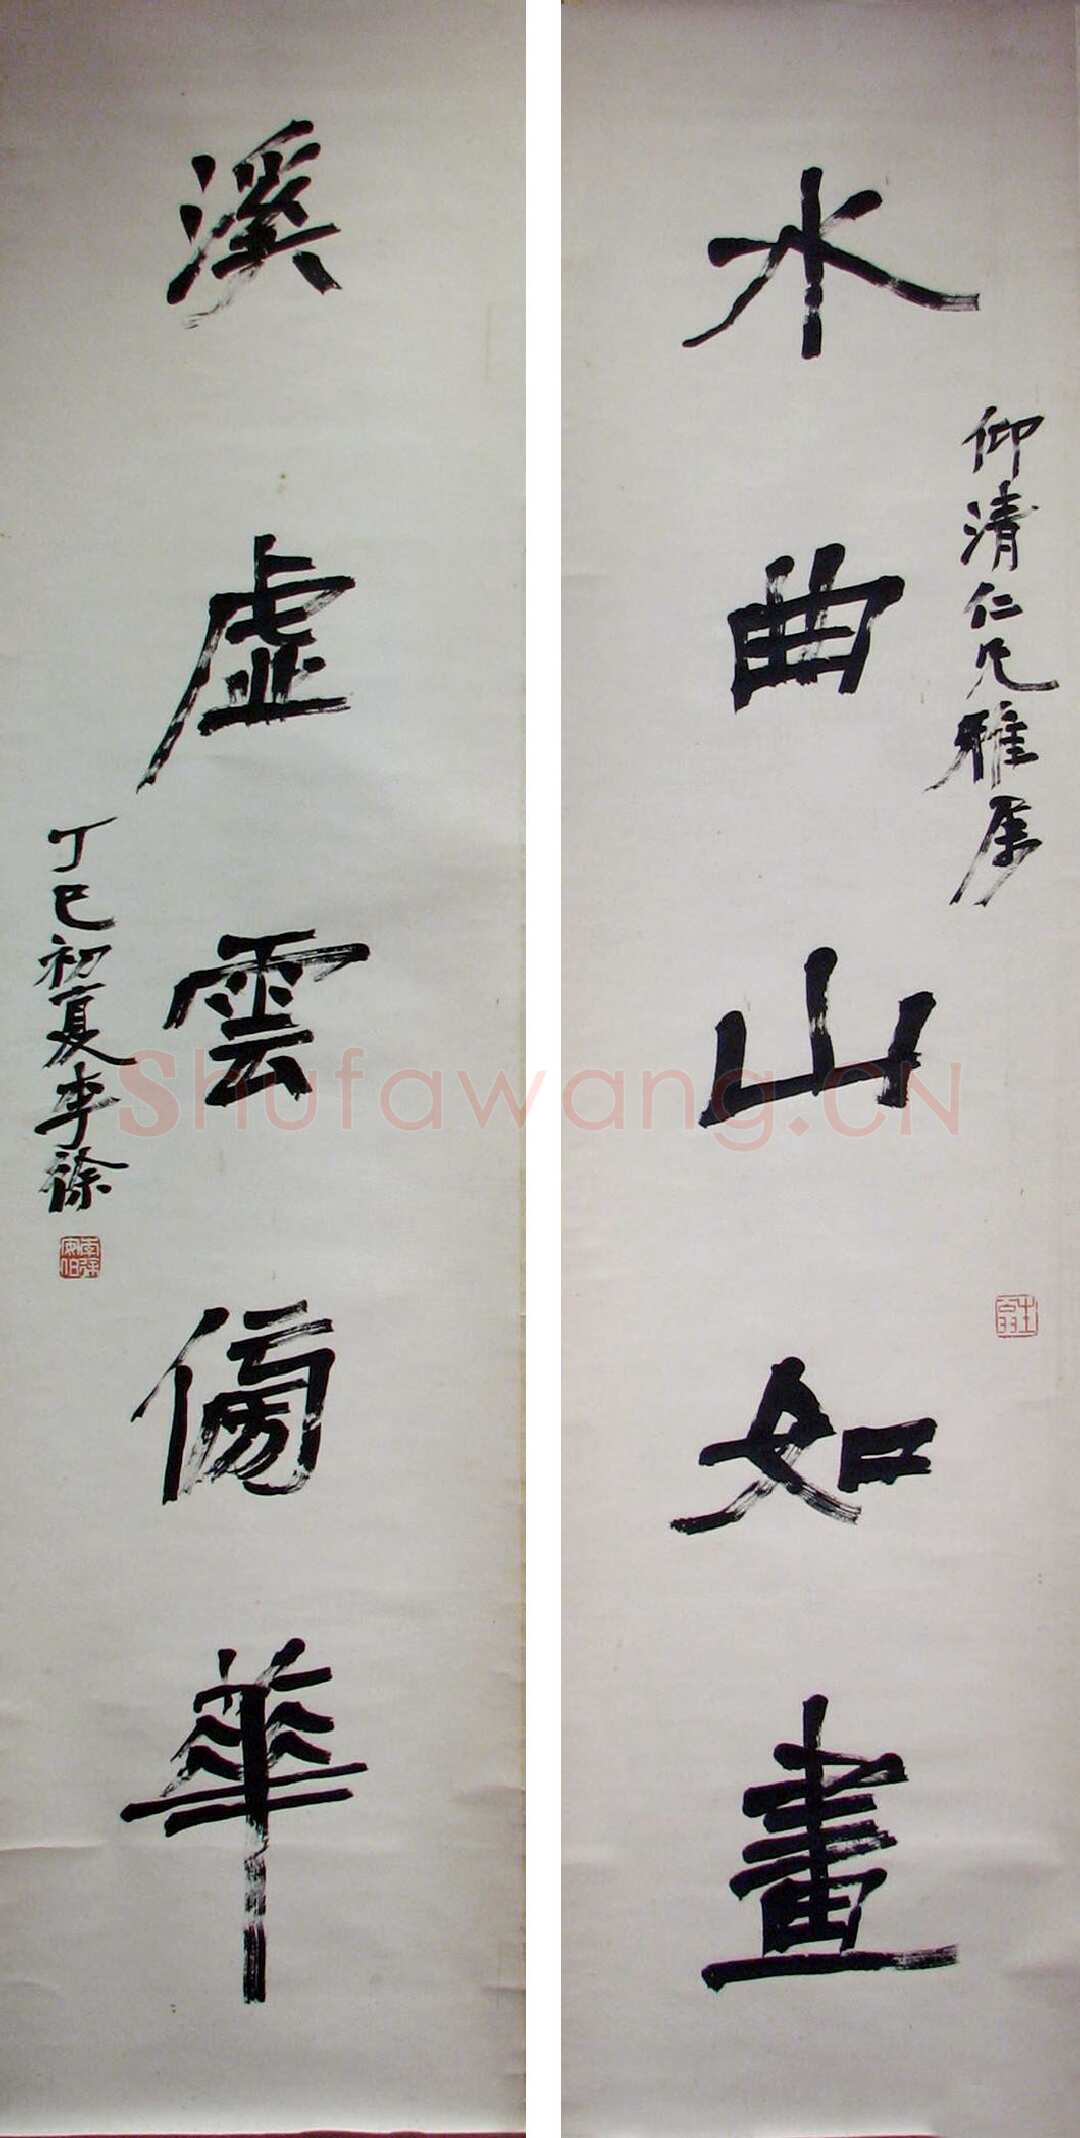 水曲山如畫
仰清仁兄雅属
生翁
溪虚雲傍華
丁巳初夏李徐
Shufawang.CN